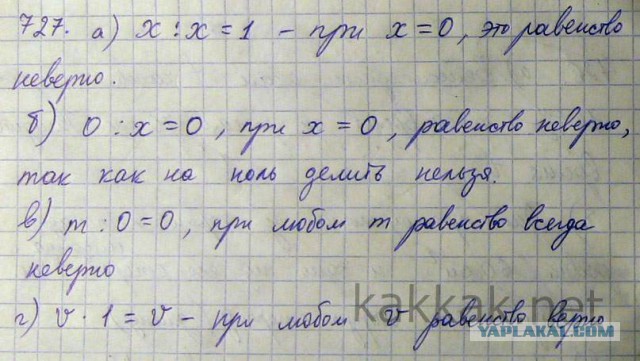 727. а) x : x = 1 – при x = 0, это равенство
неверно.
б) 0 : x = 0, при x = 0, равенство неверно,
так как на ноль делить нельзя.
в) m : 0 = 0, при любом m равенство всегда
неверно
kakkak.net
г) v · 1 = v – при любом v равенство верно
YAPLAKAL.COM